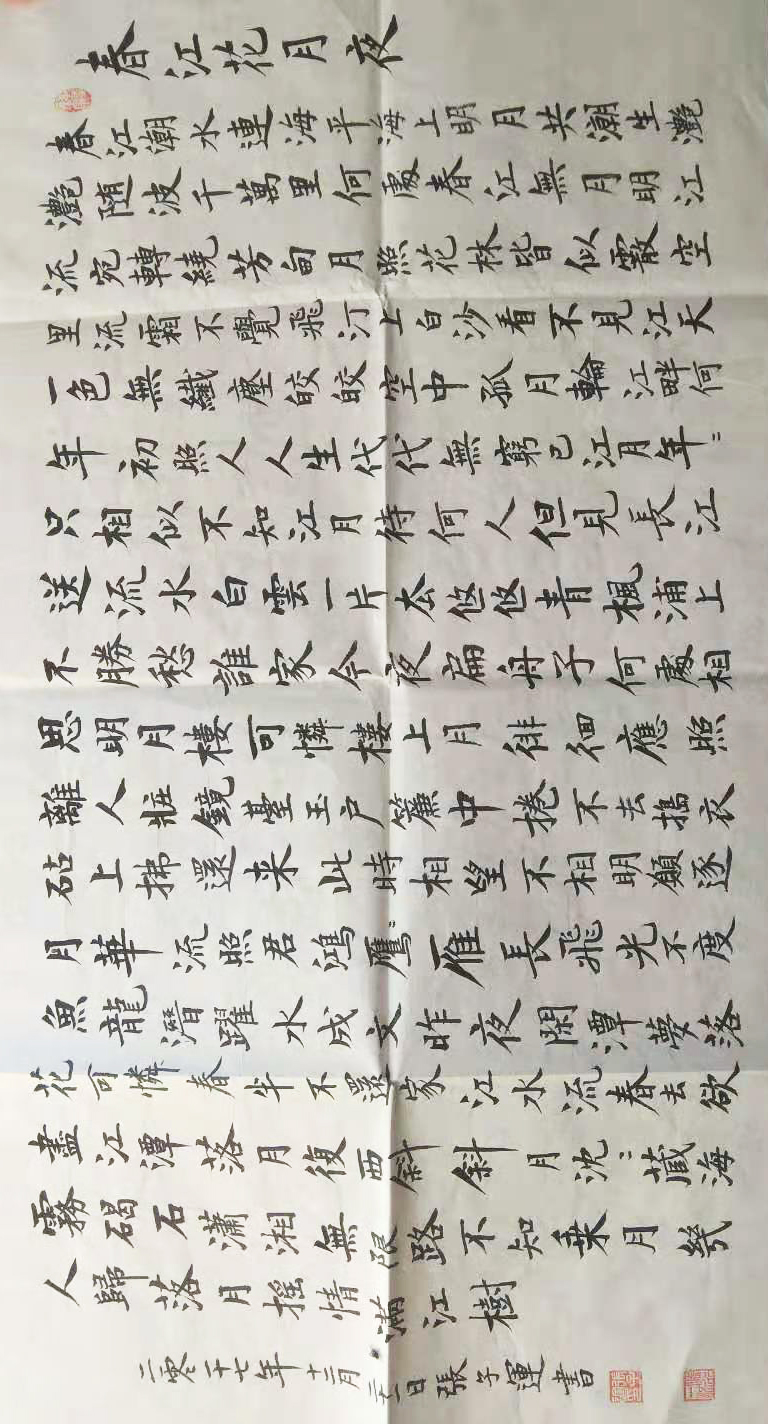 春江花月夜
春江潮水連海平海上明月共潮生灔
灔随波千萬里何處春江無月明江
流宛轉繞芳甸月照花林皆似霰空
里流霜不覺飛汀上白沙看不見江天
一色無纖塵皎皎空中孤月輪江畔何
年初照人人生代代無窮已江月年〃
只相似不知江月待何人但見長江
送流水白雲一片去悠悠青楓浦上
不勝愁誰家今夜扁舟子何處相
思明月樓可憐樓上月徘徊應照
離人粧鏡臺玉户簾中捲不去搗衣
砧上拂還来此時相望不相明願逐
月華流照君鴻鷹〃雁長飛光不度
魚龍潛躍水成文昨夜閑潭夢落
花可憐春半不還家江水流春去欲
盡江潭落月復西斜斜月沈〃藏海
霧碣石瀟湘無限路不知乗月幾
人歸落月摇情滿江樹
二零一七年十二月日張子運書